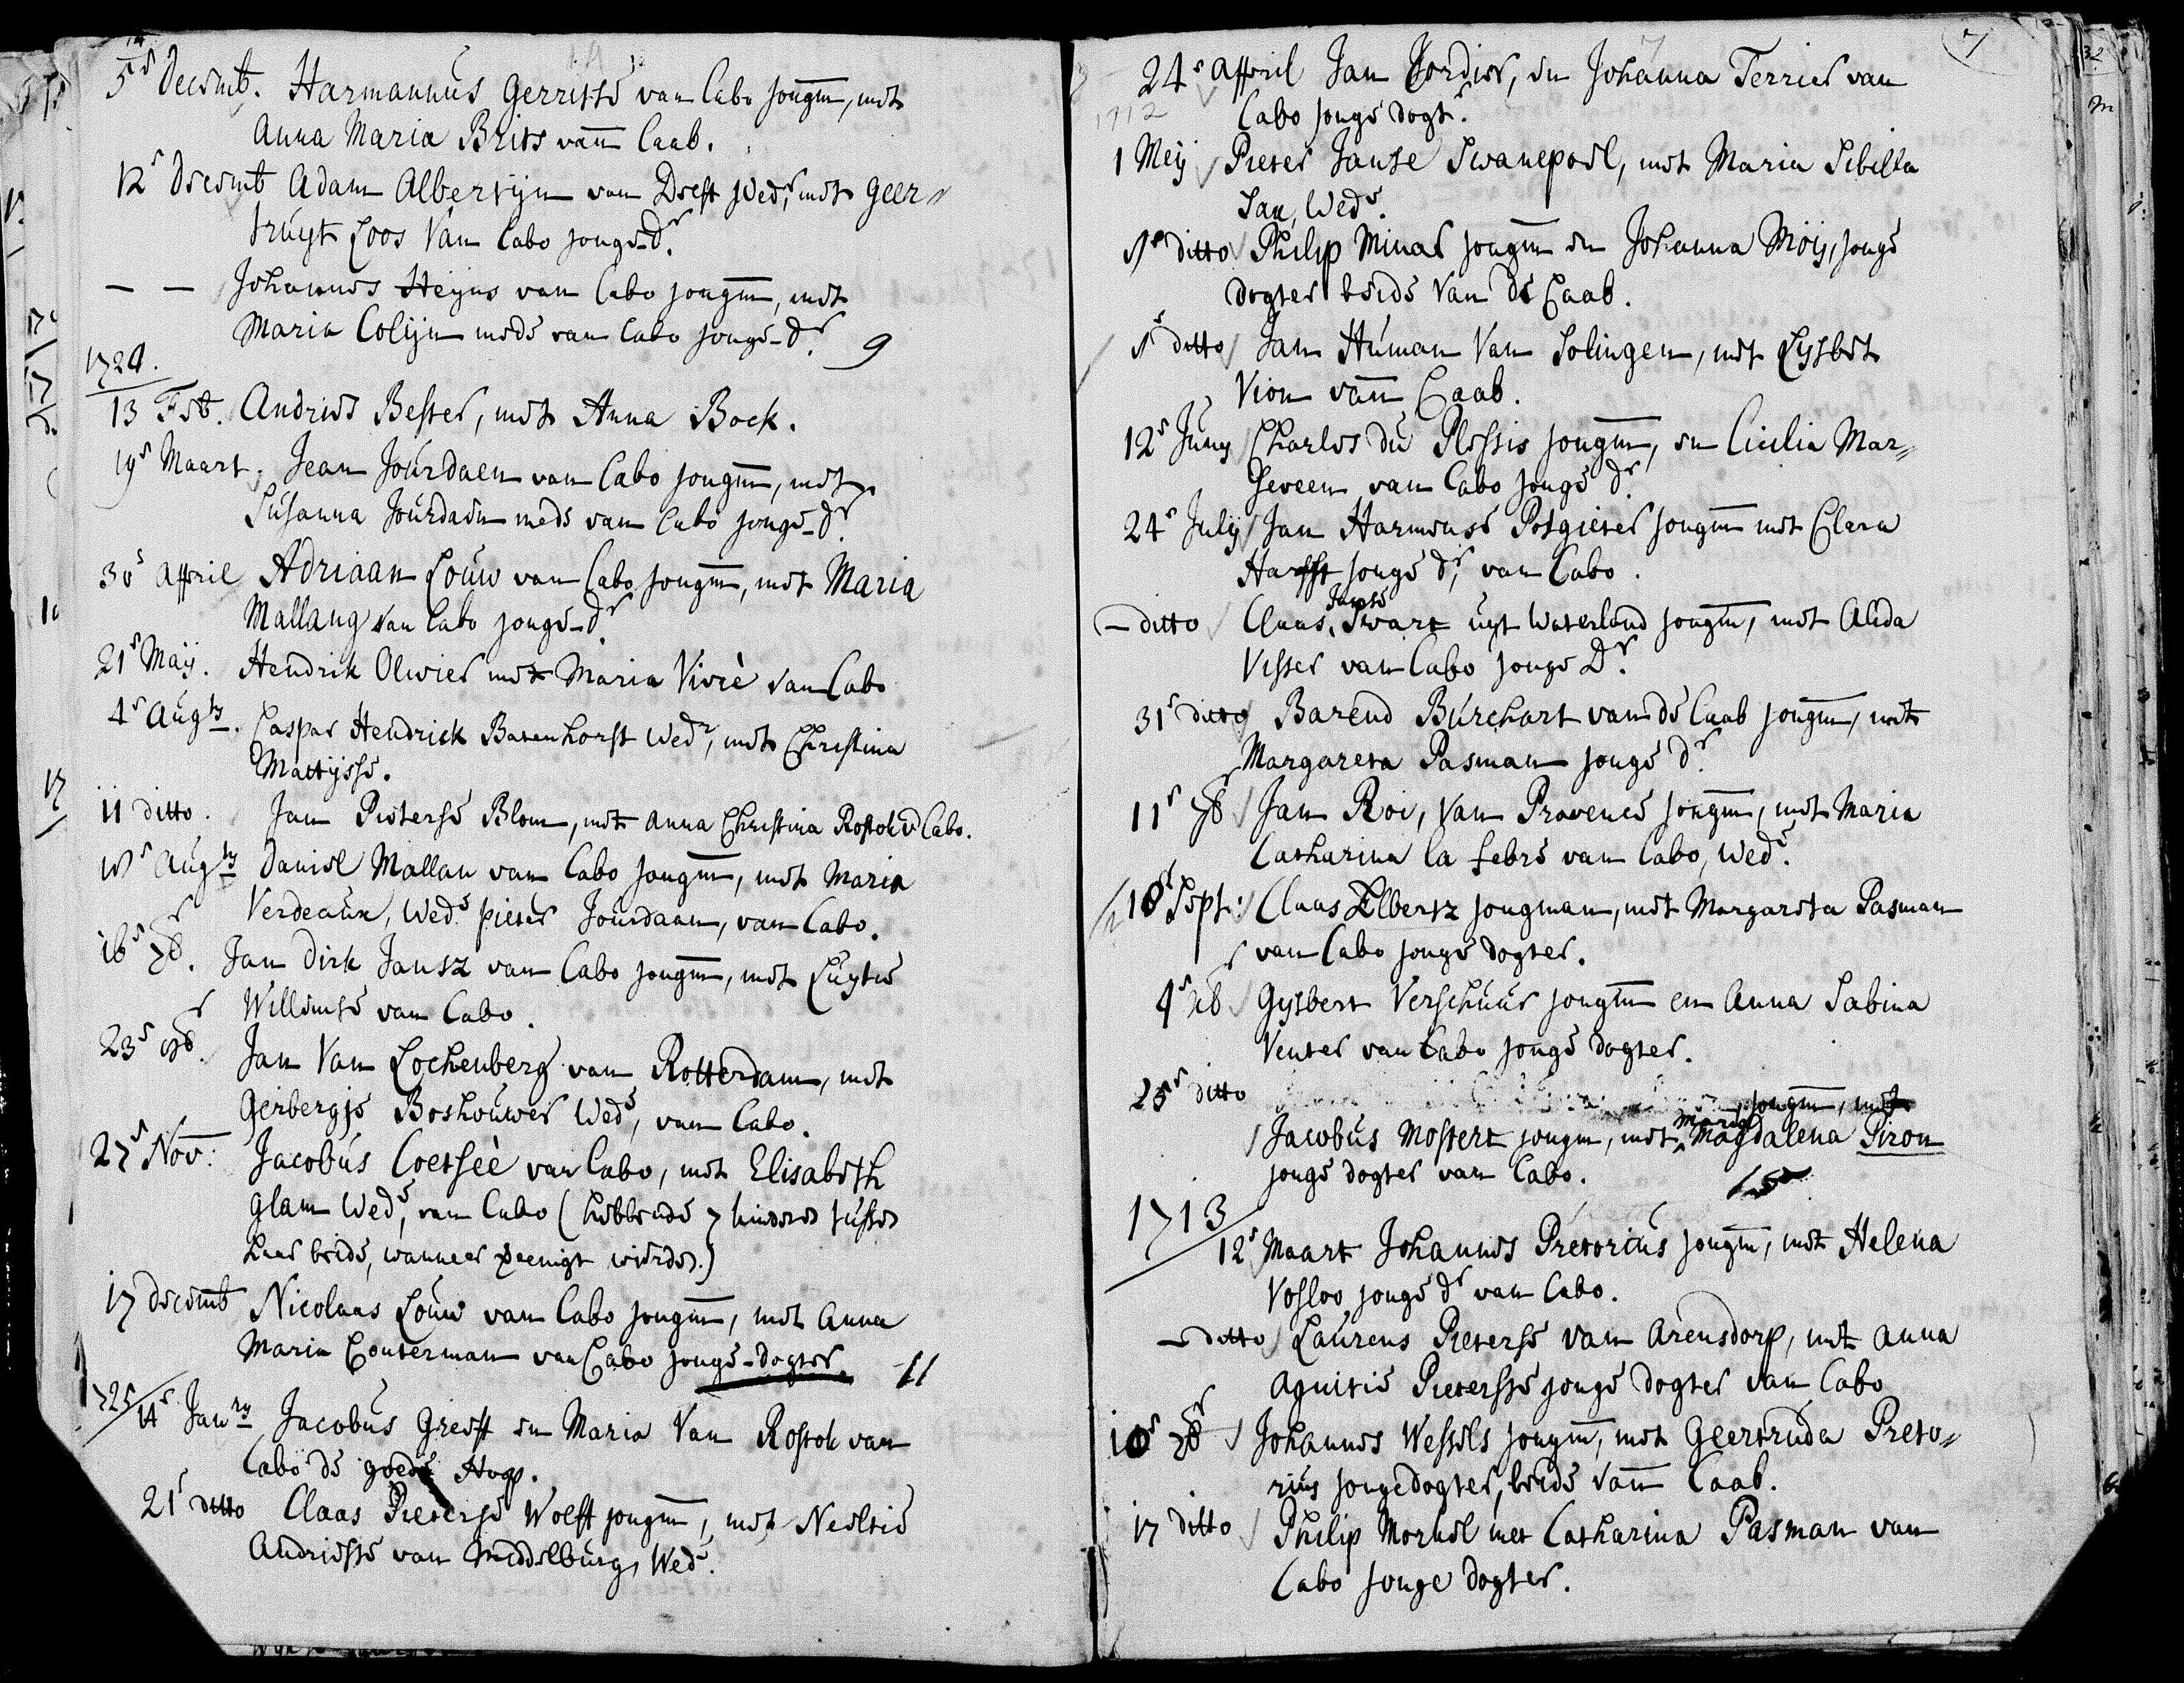 5e Decemb. Harmannus Gerritse van Cabo jongm, met
Anna Maria Brits van Caab.
12e Decemb Adam Albertijn van Delft Wedr, met Geer=
truijt Loos Van Cabo jonge-dr.
— — Johannes Heyns van Cabo jongm, met
Maria Colijn mede van Cabo jonge-dr.
9
1724.
13 Feb. Andries Bester, met Anna Bock.
19e Maart. Jean Jourdaen van Cabo jongm, met
Susanna Jourdaen mede van Cabo jonge-dr.
30e April Adriaan Louw van Cabo jongm, met Maria
Mallang van Cabo jonge-dr.
21e Maij. Hendrik Olivier met Maria Vivrè van Cabo
4e Augts. Caspar Hendrick Batenhorst Wedr, met Christina
Mattijsse.
11 ditto. Jan Pieterse Blom, met Anna Christina Rostok v Cabo.
Augts Daniel Mallan van Cabo jongm, met Maria
Verdeaux, Wede. pieter Jourdaan, van Cabo.
16e 7br. Jan Dirk Jansz van Cabo jongm, met Luytie
Willemse van Cabo.
23e Jan Van Lochenberg van Rotterdam, met
Gerbergje Boshouwer Wede, van Cabo.
27e Nov: Jacobus Coetseè van Cabo, met Elisabeth
Glam Wede, van Cabo (hebbende 7 kinderen tussen
haar beide, wanneer vereenigt wierden.)
17 Decemb Nicolaas Louw van Cabo jongm, met Anna
Maria Couterman van Cabo jonge-dogter.
11
725
14e Janry Jacobus Greeff en Maria Van Rostok van
Cabo de goede Hoop.
21e ditto Claas Pieterse Wolff jongm, met Neeltie
Andriesse van Middelburg, Wede.
7
24e April Jan Cordier, en Johanna Terrier van
1712 Cabo jonge dogtr.
1 Meij Pieter Janse Swanepoel, met Maria Sibella
Sax, Wede.
1e ditto Philip Minar jongm en Johanna Moij, jonge
dogter beide Van de Caab.
1e ditto Jan Human Van Solingen, met Lijsbet
Vion van Caab.
12e Juny Charles du Plessis jongm, en Cicilia Mar=
seveen van Cabo jonge dr.
24e Julij Jan Harmense Potgieter jongm met Clara
Harfst jonge dr, van Cabo.
Janse
— ditto Claas Swart uyt Waterland jongm, met Alida
Visser van Cabo jonge Dr.
31e ditto Barend Burchart van de Caab jongm, met
Margareta Pasman jonge dr.
11e 7br Jan Roi, Van Provence jongm, met Maria
Catharina la febre van Cabo, Wede.
18e Sept: Claas Elbertz jongman, met Margareta Pasman
van Cabo jonge dogter.
4e xbr Gysbert Verschuur jongm en Anna Sabina
Venter van Cabo jonge dogter.
25e ditto jongm, met
Maria
Jacobus Mostert jongm, met Magdalena Piron
jonge dogter van Cabo.
15
1713
12e Maart Johannes Pretorius jongm, met Helena
Vosloo jonge dr van Cabo.
— ditto Laurens Pieterse van Arensdorp, met Anna
Agnitie Pietersse jonge dogter van Cabo
10e 7br Johannes Wessels jongm, met Geertruda Preto=
rius jongedogter, beide van Caab.
17 ditto Philip Morkel met Catharina Pasman van
Cabo jonge dogter.